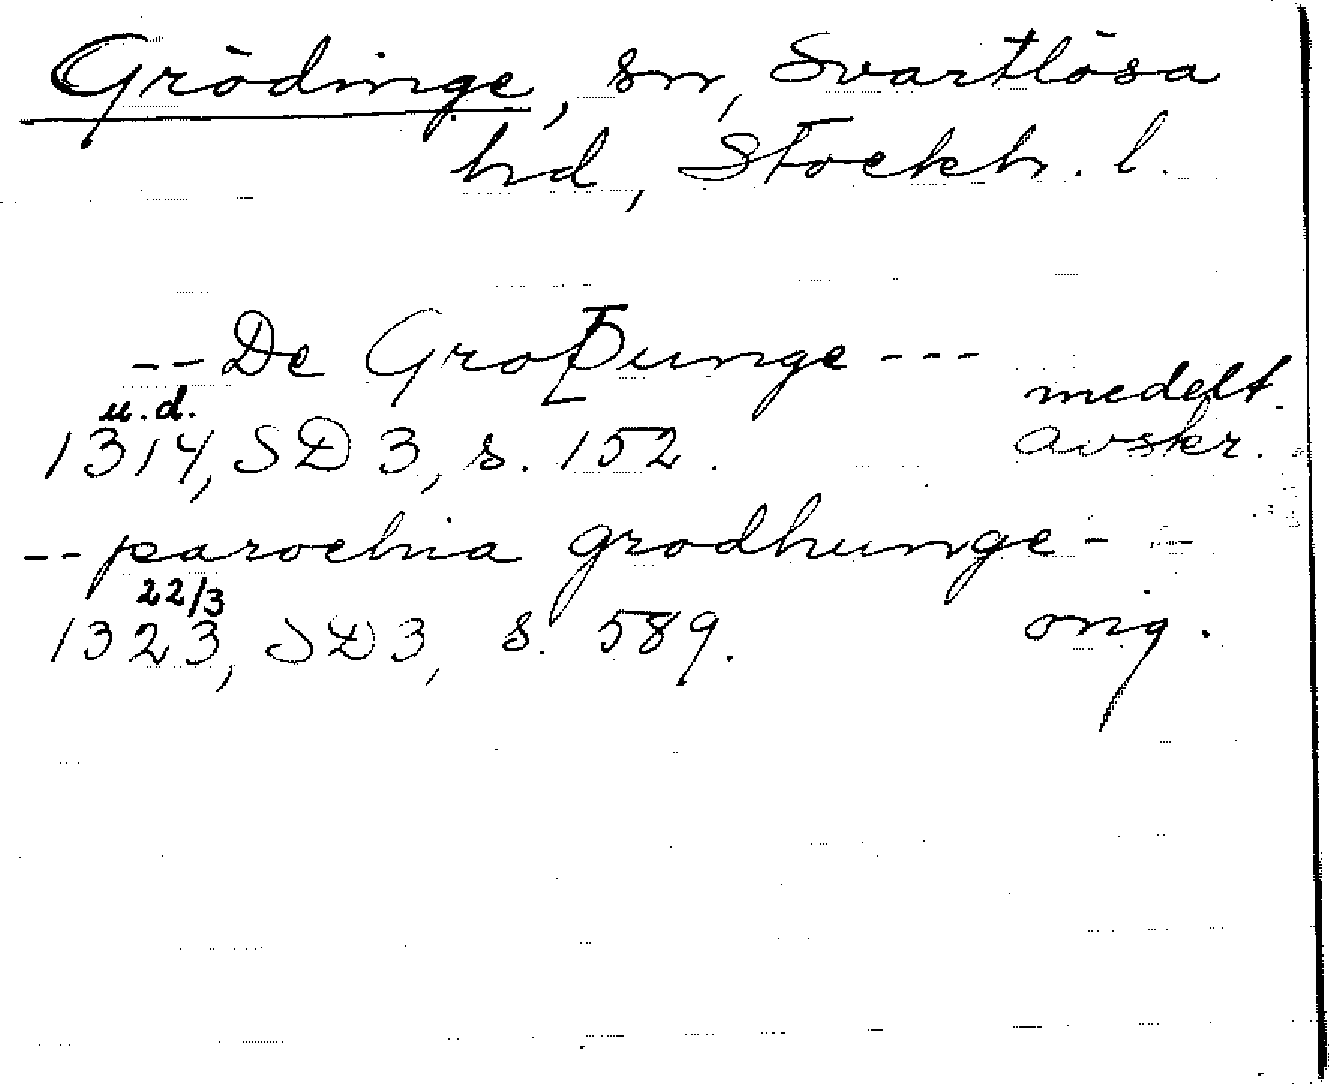 Grödinge, sn, Svartlösa
hd, Stockh. l.
-- De Groþunge ---
medelt.
u.d.
1314, SD 3, s. 152. avskr.
-- parochia grodhunge - --
22/3
1323, SD 3, s. 589. orig.